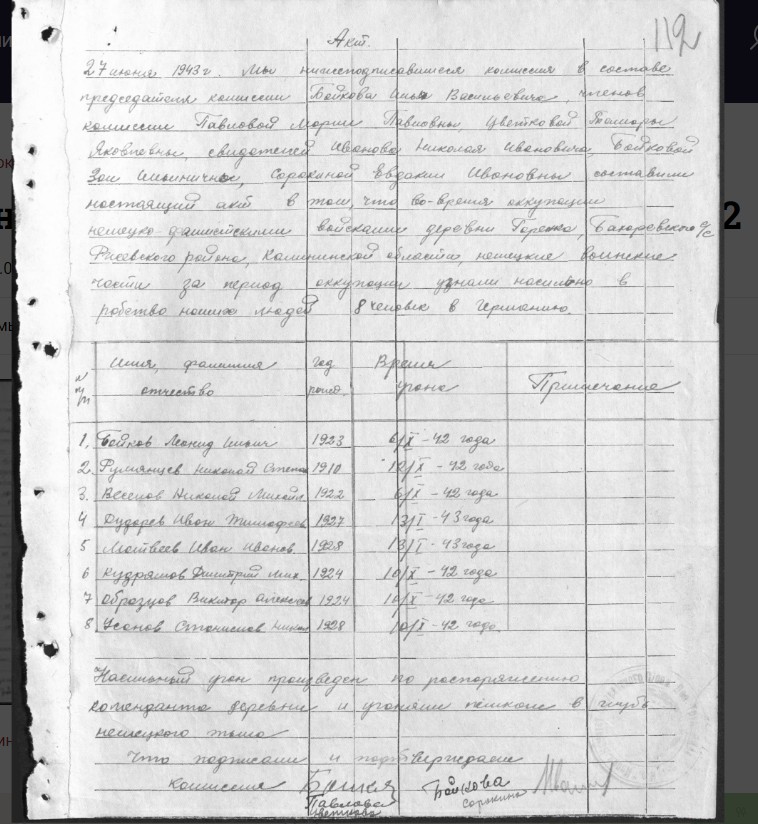 112
Акт.
27 июня 1943 г. Мы нижеподписавшиеся комиссия в составе
председателя комиссии Бойкова Ильи Васильевича, членов
комиссии Павловой Марии Павловны, Цветковой Тамары
Яковлевны, свидетелей Иванова Николая Ивановича, Бойковой
Зои Ильиничны, Сорокиной Евдокии Ивановны составили
настоящий акт в том, что во-время оккупации
немецко-фашистскими войсками деревни Горенка, с/с
Ржевского района, Калининской области, немецкие воинские
части за период оккупации угнали насильно в
рабство наших людей 8 человек в Германию.
№ п/п Имя, фамилия отчество год рожд. Время угона Примечание
1. Бойков Леонид Ильич 1923 6/X - 42 года
2. Румянцев Николай Степан 1910 12/X - 42 года
3. Веселов Николай Михайл. 1922 6/X - 42 года
4 Дударев Иван Тимофеев 1927 13/I - 43 года
5 Матвеев Иван Иванов. 1928 13/I - 43 года
6 Кудряшов Дмитрий Мих. 1924 10/X - 42 года
7 Образцов Виктор Алексеев 1924 10/X - 42 года
8 Усанов Станислав 1928 10/X - 42 года.
Насильный угон произведен по распоряжению
коменданта деревни и угоняли пешком в глубь
немецкого тыла
Что подписали и подтверждаем
комиссия Бойкова
Павлова Сорокина
Цветкова